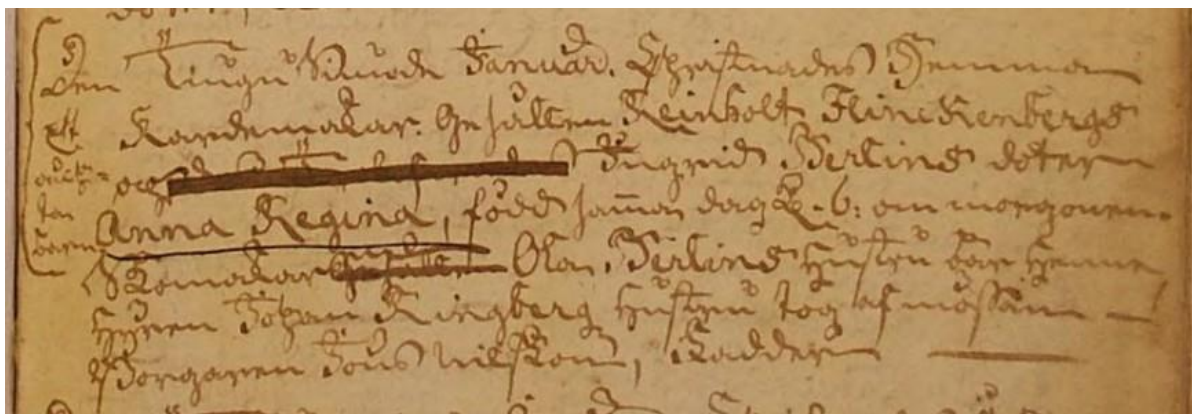 Den Tiugu Siunde Januar. Christnades Hemma
Kardemakar Gesällen Reinholt Klinckenbergs
och Ingrid Berlins doter
Anna Regina, född samma dag Kl. 6. om morgonen.
Skomakar Ola Berlins hustru bar henne
Johan Ringberg hustru tog af mössan
Borgaren Jöns Nilsson, Fadder
ächta barn